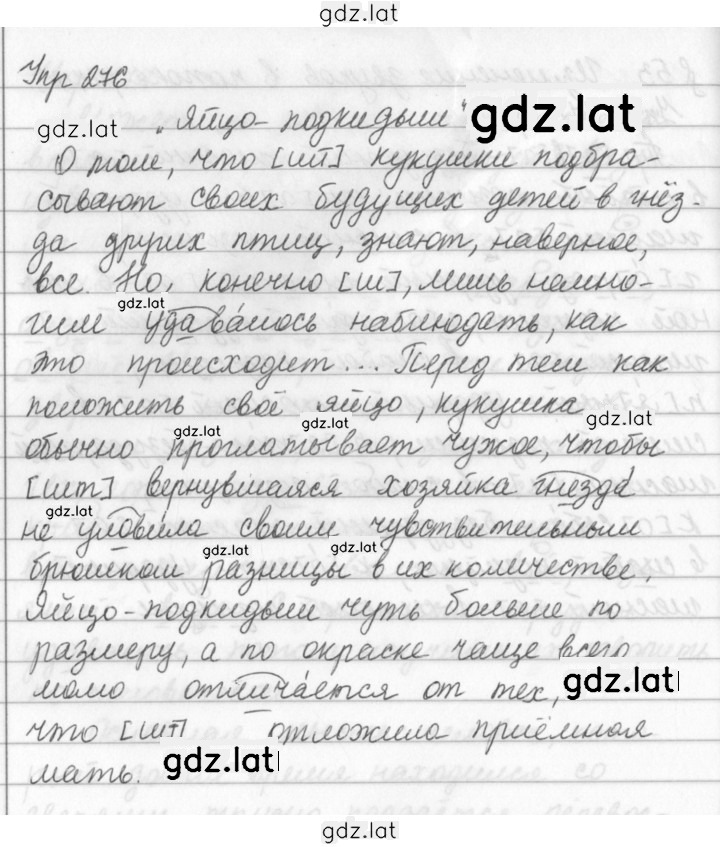 gdz.lat
Упр 276
gdz.lat
„Яйцо-подкидыш"
gdz.lat
О том, что [шт] кукушки подбра-
сывают своих будущих детей в гнёз-
да других птиц, знают, наверное,
все. Но, конечно [ш], лишь немно-
gdz.lat
гим удавалось наблюдать, как
это происходит... Перед тем как
положить своё яйцо, кукушка
gdz.lat gdz.lat gdz.lat
обычно проглатывает чужое, чтобы
[шт] вернувшаяся хозяйка гнезда
gdz.lat
не уловила своим чувствительным
gdz.lat gdz.lat
брюшком разницы в их количестве.
Яйцо-подкидыш чуть больше по
размеру, а по окраске чаще всего
мало отличается от тех,
gdz.lat
что [шт] отложила приёмная
мать.
gdz.lat
gdz.lat